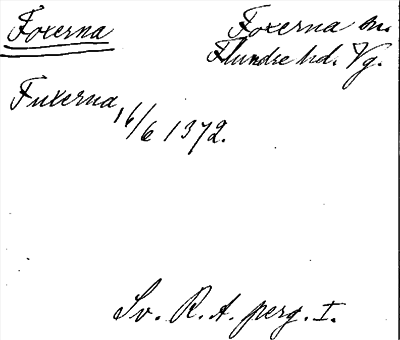 Foxerna
Foxerna sn.
Flundre hd. Vg.
Fuxerna, 16/6 1372.
Sv. R. A. perg. I.